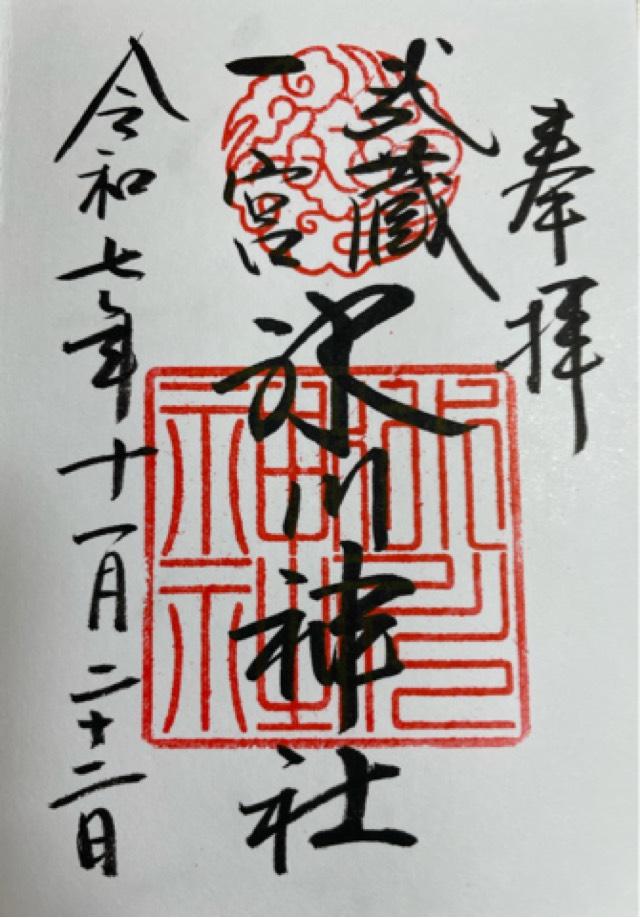 奉拝
武蔵
一宮
氷川神社
氷川神社
令和七年十一月二十二日